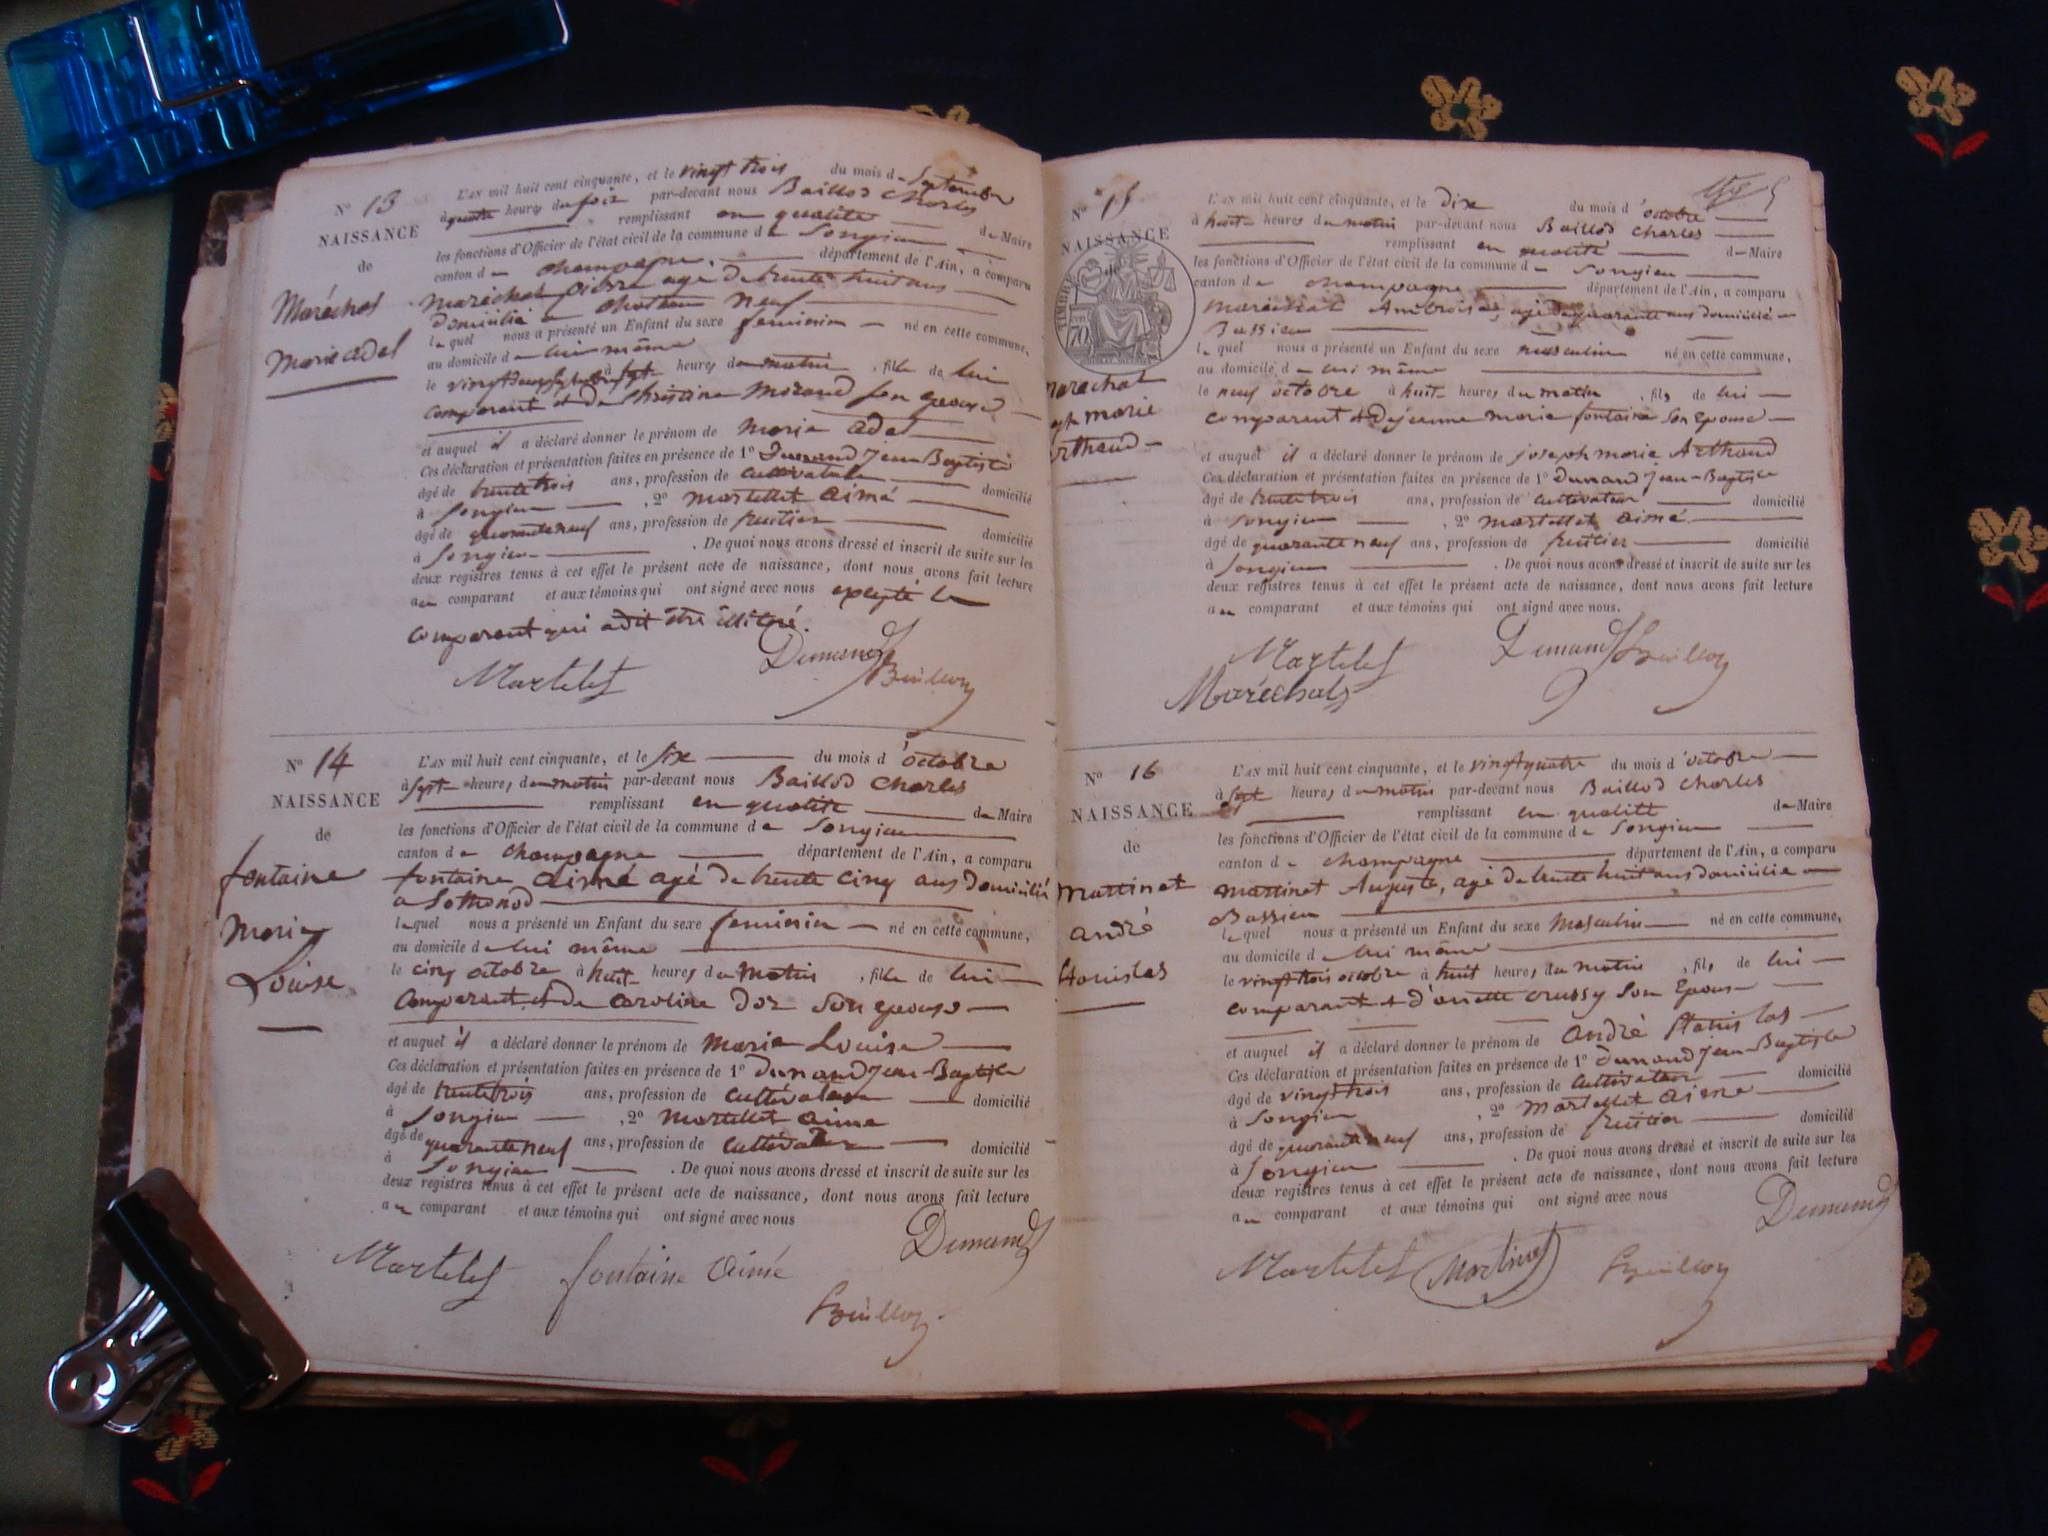 N° 13
NAISSANCE
de
Maréchal
Marie adel
L'AN mil huit cent cinquante, et le vingt trois du mois de Septembre
à quatre heures du soir par-devant nous Baillod Charles
remplissant en qualité de Maire
les fonctions d'Officier de l'état civil de la commune de Songieu
canton de champagne département de l'Ain, a comparu
maréchal pierre agé de trente huit ans
domicilié a chateau neuf
lequel nous a présenté un Enfant du sexe feminin né en cette commune,
au domicile de lui même
le vingt heures du matin , fille de lui
comparant et de Christine Morand son epouse
et auquel il a déclaré donner le prénom de Marie adel
Ces déclaration et présentation faites en présence de 1° Dunand Jean-Baptiste
âgé de trente trois ans, profession de cultivateur domicilié
à Songieu , 2° Martellet aimé
âgé de quarante neuf ans, profession de fruitier domicilié
à Songieu . De quoi nous avons dressé et inscrit de suite sur les
deux registres tenus à cet effet le présent acte de naissance, dont nous avons fait lecture
au comparant et aux témoins qui ont signé avec nous exepté le
comparant qui a dit être illitéré.
Martelet Dunand Baillod
N° 14
NAISSANCE
de
fontaine
Marie
Louise
L'AN mil huit cent cinquante, et le six du mois d'octobre
à sept heures du matin par-devant nous Baillod Charles
remplissant en qualité de Maire
les fonctions d'Officier de l'état civil de la commune de Songieu
canton de champagne département de l'Ain, a comparu
fontaine aimé agé de trente cinq ans domicilié
a Sothonod
lequel nous a présenté un Enfant du sexe feminin né en cette commune,
au domicile de lui même
le cinq octobre à huit heures du matin , fille de lui
comparant et de caroline Dor son epouse
et auquel il a déclaré donner le prénom de Marie Louise
Ces déclaration et présentation faites en présence de 1° Dunand Jean-Baptiste
âgé de trente trois ans, profession de cultivateur domicilié
à Songieu , 2° Martellet aimé
âgé de quarante neuf ans, profession de cultivateur domicilié
à Songieu . De quoi nous avons dressé et inscrit de suite sur les
deux registres tenus à cet effet le présent acte de naissance, dont nous avons fait lecture
au comparant et aux témoins qui ont signé avec nous
Dunand
Martelet fontaine aimé
Baillod
N° 15
NAISSANCE
TIMBRE
70
marechal
marie
rthaud
L'AN mil huit cent cinquante, et le dix du mois d'octobre
à huit heures du matin par-devant nous Baillod Charles
remplissant en qualité de Maire
les fonctions d'Officier de l'état civil de la commune de Songieu
canton de champagne département de l'Ain, a comparu
marechal Ambroise, agé de quarante ans domicilié a
Bassieu
lequel nous a présenté un Enfant du sexe masculin né en cette commune,
au domicile de lui même
le neuf octobre à huit heures du matin , fils de lui
comparant et de jeanne marie fontaine son epouse
et auquel il a déclaré donner le prénom de joseph marie Arthaud
Ces déclaration et présentation faites en présence de 1° Dunand Jean-Baptiste
âgé de trente trois ans, profession de cultivateur domicilié
à Songieu , 2° Martellet aimé
âgé de quarante neuf ans, profession de fruitier domicilié
à Songieu . De quoi nous avons dressé et inscrit de suite sur les
deux registres tenus à cet effet le présent acte de naissance, dont nous avons fait lecture
au comparant et aux témoins qui ont signé avec nous.
Martelet Dunand Baillod
Maréchal
N° 16
NAISSANCE
de
Martinet
andré
Stanislas
L'AN mil huit cent cinquante, et le vingt quatre du mois d'octobre
à sept heures du matin par-devant nous Baillod Charles
remplissant en qualité de Maire
les fonctions d'Officier de l'état civil de la commune de Songieu
canton de champagne département de l'Ain, a comparu
martinet Auguste, agé de trente huit ans domicilié a
Bassieu
lequel nous a présenté un Enfant du sexe Masculin né en cette commune,
au domicile de lui même
le vingt trois octobre à huit heures du matin , fils de lui
comparant et crussy son Epouse
et auquel il a déclaré donner le prénom de andré Stanislas
Ces déclaration et présentation faites en présence de 1° Dunand Jean-Baptiste
âgé de vingt trois ans, profession de cultivateur domicilié
à Songieu , 2° Martellet aimé
âgé de quarante neuf ans, profession de fruitier domicilié
à Songieu . De quoi nous avons dressé et inscrit de suite sur les
deux registres tenus à cet effet le présent acte de naissance, dont nous avons fait lecture
au comparant et aux témoins qui ont signé avec nous
Dunand
Martelet Martinet Baillod